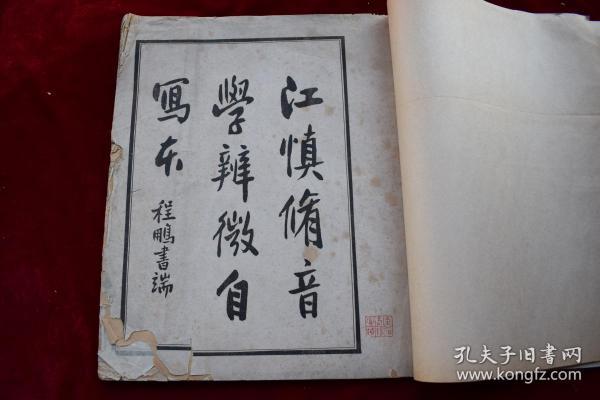 江慎脩音
學辨微自
寫本
程鵬書端
孔夫子旧书网
www.kongfz.com